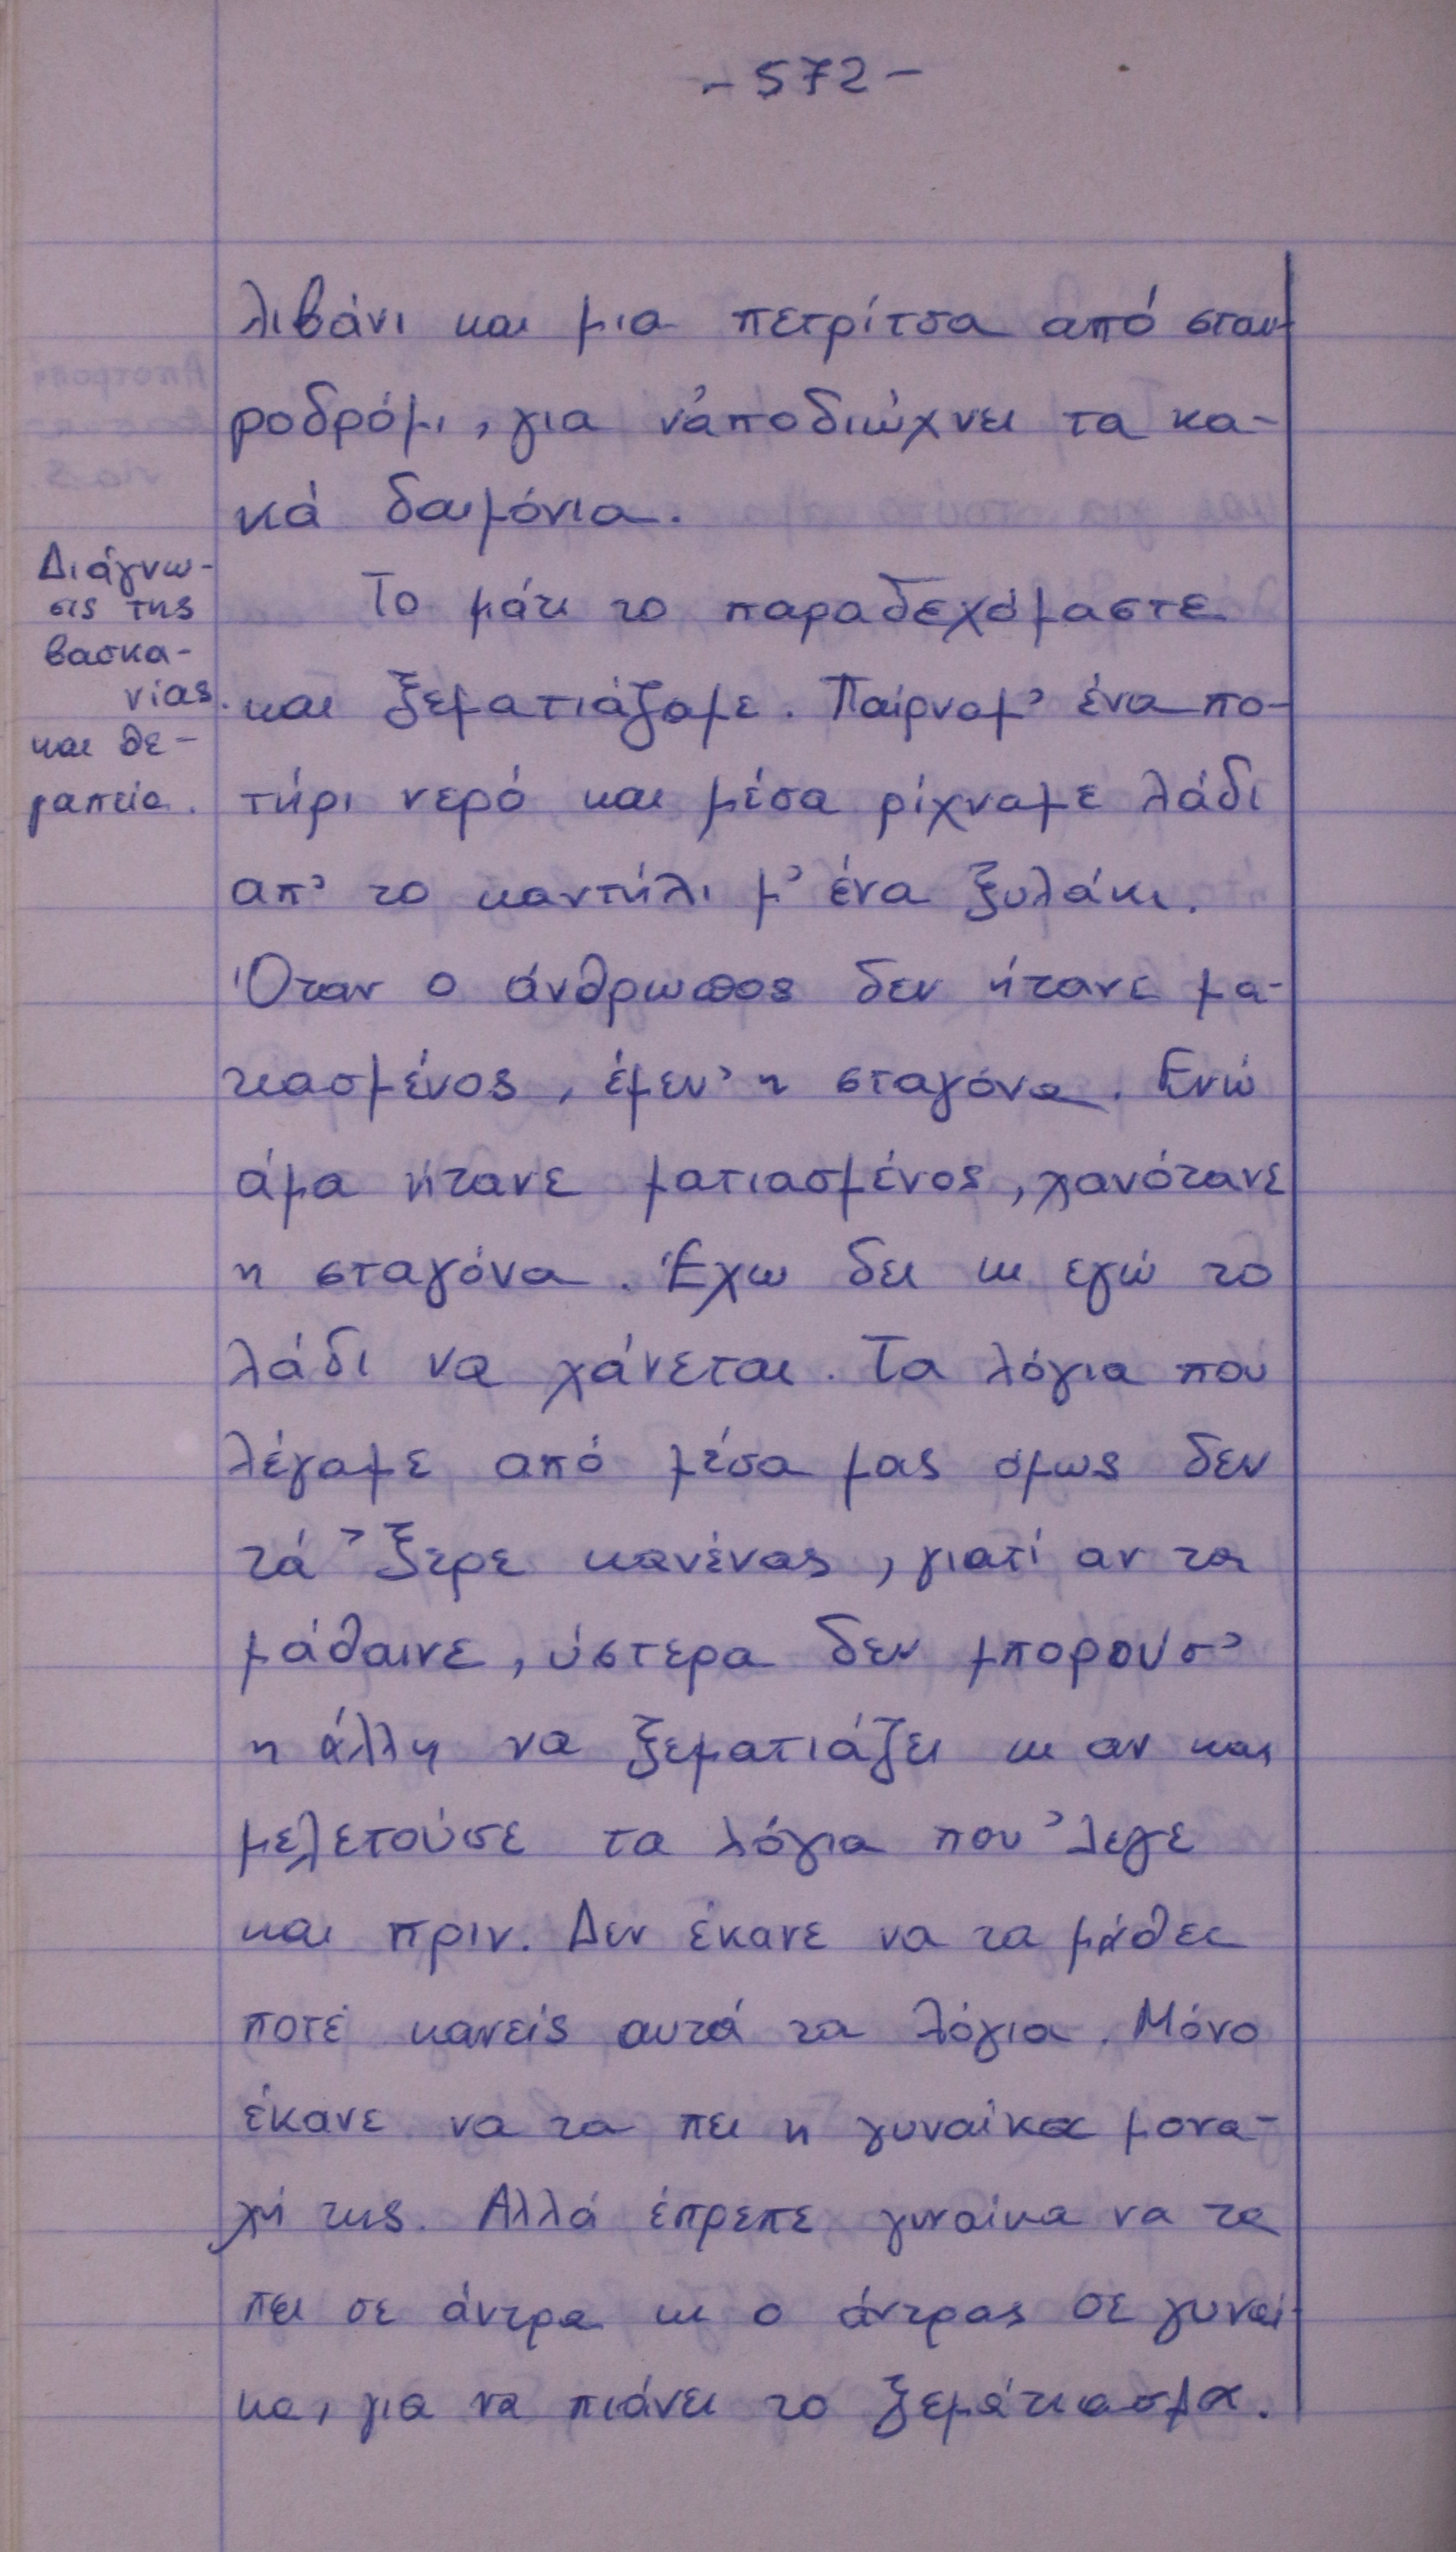 -572-
λιβάνι και μια πετρίτσα από σταυ-
ροδρόμι, για ν'αποδιώχνει τα κα-
κά δαιμόνια.
Διάγνω-
σις της
βασκα-
νίας.
και θε-
ραπεία.
Το μάτι το παραδεχόμαστε
και ξεματιάζαμε. Παίρναμ' ένα πο-
τήρι νερό και μέσα ρίχναμε λάδι
απ' το καντήλι μ' ένα ξυλάκι.
Όταν ο άνθρωπος δεν ήτανε μα-
τιασμένος, έμεν' η σταγόνα. Ενώ
άμα ήτανε ματιασμένος, χανότανε
η σταγόνα. Έχω δει κι εγώ το
λάδι να χάνεται. Τα λόγια που
λέγαμε από μέσα μας όμως δεν
τά 'ξερε κανένας, γιατί αν τα
μάθαινε, ύστερα δεν μπορούσ'
η άλλη να ξεματιάζει κι αν και
μελετούσε τα λόγια που 'λεγε
και πριν. Δεν έκανε να τα μάθει
ποτέ κανείς αυτά τα λόγια. Μόνο
έκανε να τα πει η γυναίκα μονα-
χή της. Αλλά έπρεπε γυναίκα να τα
πει σε άντρα κι ο άντρας σε γυναί-
κα, για να πιάνει το ξεμάτιασμα.